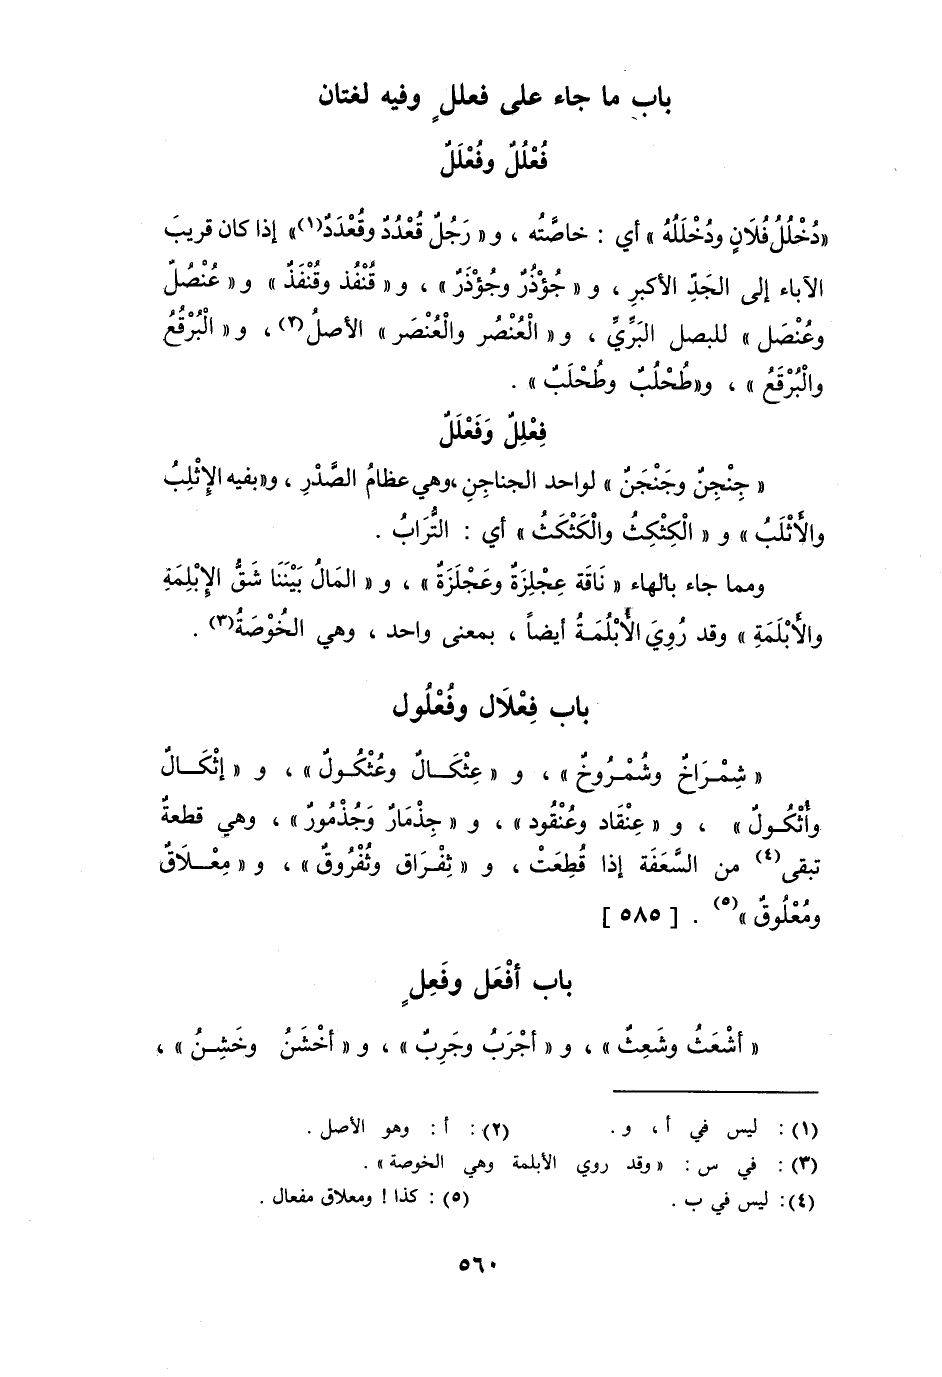 باب ما جاء على فعللٍ وفيه لغتان
فُعْلُلٌ وفُعْلَلٌ
«دُخْلُلُ فُلَانٍ ودُخْلَلُهُ» أي : خاصَّتُه ، و«رَجُلٌ قُعْدُدٌ وقُعْدَدٌ(١)» إذا كان قريبَ
الآباء إلى الجَدِّ الأكبرِ ، و « جُؤْذُرٌ وجُؤْذَرٌ » ، و« قُنْفُذ وقُنْفَذٌ » و« عُنْصُلٌ
وعُنْصَل » للبصل البَرِّيِّ ، و« الْعُنْصُر والْعُنْصَر » الأصلُ(٢)، و« الْبُرْقُعُ
والْبُرْقَعُ » ، و«طُحْلُبٌ وطُحْلَبٌ » .
فِعْلِلٌ وَفَعْلَلٌ
« جِنْجِنٌ وجَنْجَنٌ » لواحد الجناجنِ ،وهي عظامُ الصَّدْرِ ، و«بفيه الإِثْلِبُ
والأَثْلَبُ » و « الْكِثْكِثُ والْكَثْكَثُ » أي : التُّرَابُ .
ومما جاء بالهاء « نَاقَة عِجْلِزَةٌ وعَجْلَزَةٌ » ، و « المَالُ بَيْنَنَا شَقُّ الإِبْلِمَةِ
والأَبْلَمَةِ » وقد رُوِيَ الأُبْلُمَةُ أيضاً ، بمعنى واحد ، وهي الخُوْصَةُ(٣) .
باب فِعْلَال وفُعْلُول
« شِمْرَاخٌ وشُمْرُوخٌ » ، و « عِثْكَالٌ وعُثْكُولٌ » ، و « إثْكَالٌ
وأُثْكُولٌ » ، و « عِنْقَاد وعُنْقُود » ، و « جِذْمَارٌ وَجُذْمُورٌ » ، وهي قطعةٌ
تبقى(٤) من السَّعَفَة إذا قُطِعَتْ ، و « ثِفْرَاق وثُفْرُوقٌ » ، و « مِعْلَاقٌ
ومُعْلُوقٌ »(٥) . [ ٥٨٥ ]
باب أفْعَل وفَعِلٍ
« أشْعَثُ وشَعِثٌ » ، و « أجْرَبُ وجَرِبٌ » ، و « أخْشَنُ وخَشِنُ » ،
(١) : ليس في أ ، و . (٢) : أ : وهو الأصل .
(٣) : في س : « وقد روي الأبلمة وهي الخوصة » .
(٤) : ليس في ب . (٥) : كذا ! ومعلاق مفعال .
٥٦٠